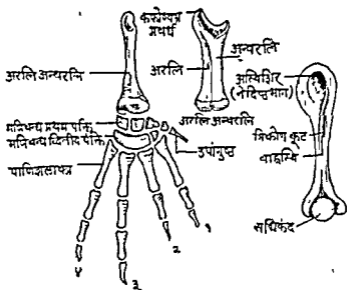 कफोण्यग्र
प्रवर्ध
अन्वरत्नि
अरत्नि
अरत्नि अन्वरत्नि
अस्थिशिर
(नेदिष्ठ भाग)
अरत्नि अन्वरत्नि
मनिबन्ध प्रथम पंक्ति
मनिबन्ध द्वितीय पंक्ति
उपांगुष्ठ
त्रिकोण कूट
बाह्वस्थि
पाणिशलाका
संधिकंद
१
२
३
४